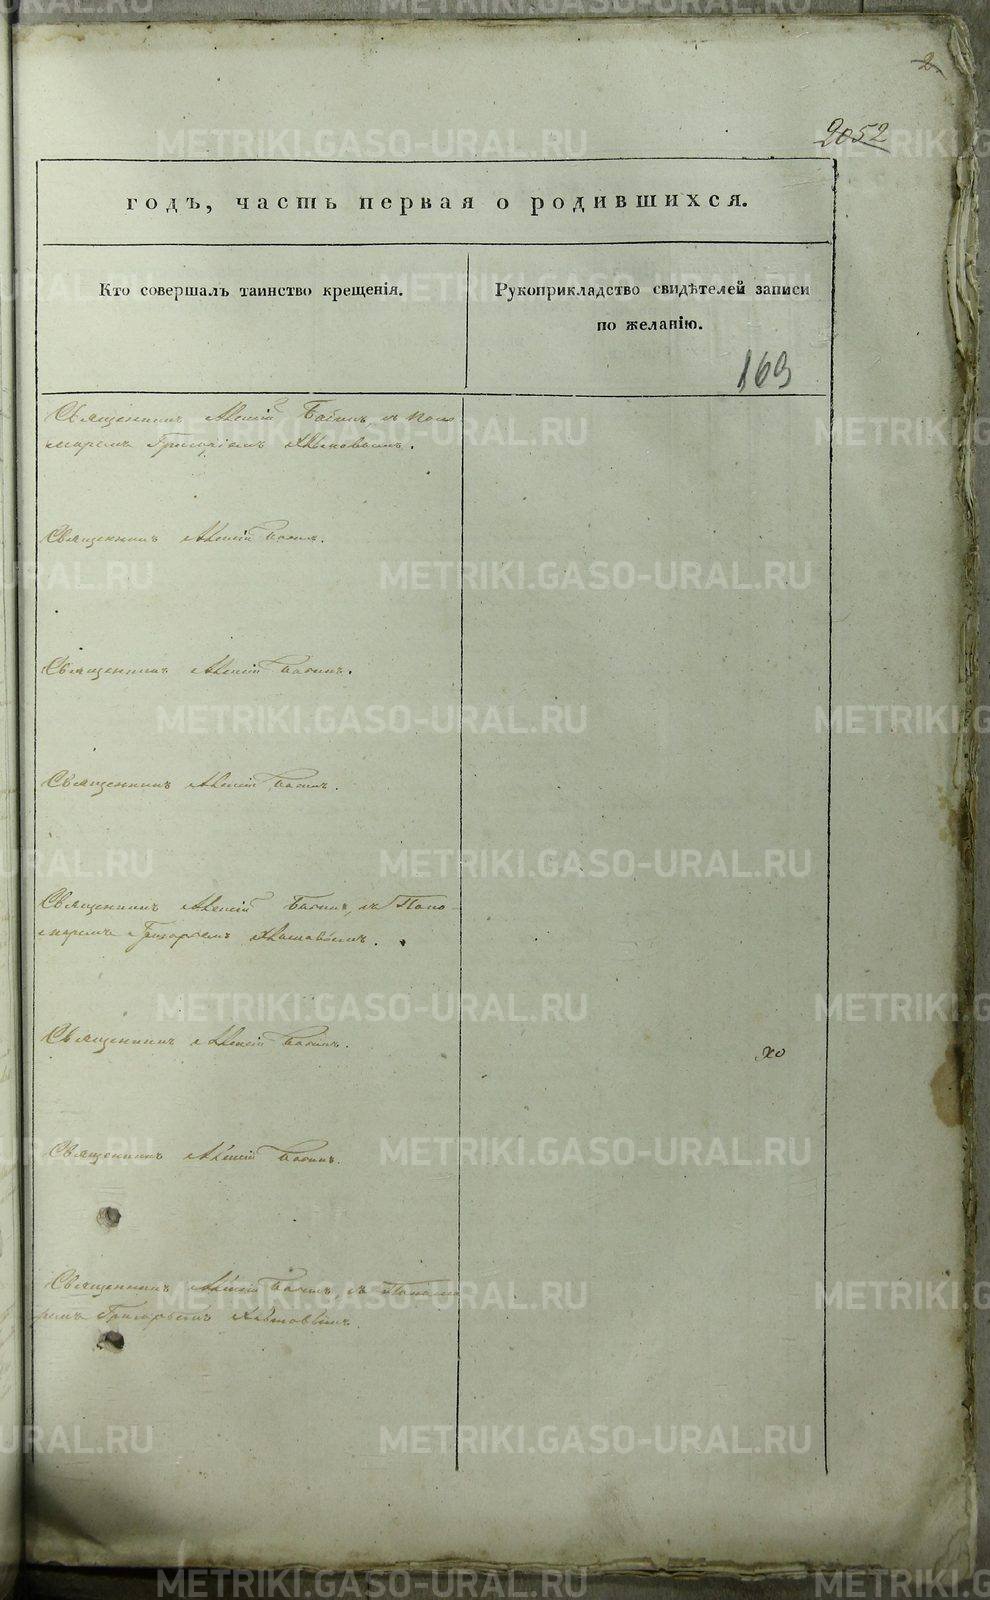 2
2052
годъ, часть первая о родившихся.
Кто совершалъ таинство крещенія.
Рукоприкладство свидѣтелей записи
по желанію.
169
Священникъ Алексій Бабинъ, съ Поно
маремъ Григоріемъ
Священникъ Алексій Бабинъ.
Священникъ Алексій Бабинъ.
Священникъ Алексій Бабинъ.
Священникъ Алексій Бабинъ, съ Поно-
маремъ Григорьемъ
Священникъ Алексій Бабинъ.
Священникъ Алексій Бабинъ.
Священникъ Алексій Бабинъ, съ Понома
ремъ Григорьемъ
METRIKI.GASO-URAL.RU